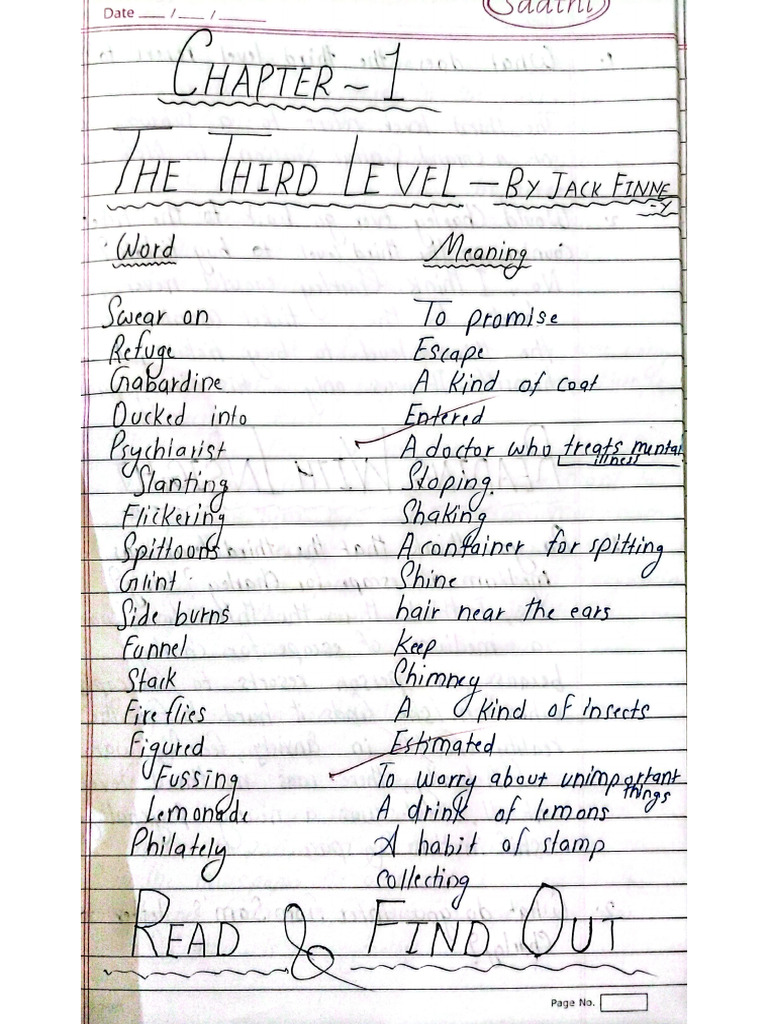 Date ___ / ___ / ___
Saathi
CHAPTER ~ 1
THE THIRD LEVEL — BY JACK FINNE
-Y
Word Meaning
Swear on To promise
Refuge Escape
Gabardine A Kind of coat
Ducked into Entered
Psychiarist A doctor who treats mental
illness
Slanting Stoping
Flickering Shaking
Spittoons A container for spitting
Glint Shine
Side burns hair near the ears
Funnel Keep
Stack Chimney
Fire flies A Kind of insects
Figured Estimated
Fussing To worry about unimportant
things
Lemonade A drink of lemons
Philately A habit of stamp
collecting
READ & FIND OUT
Page No.